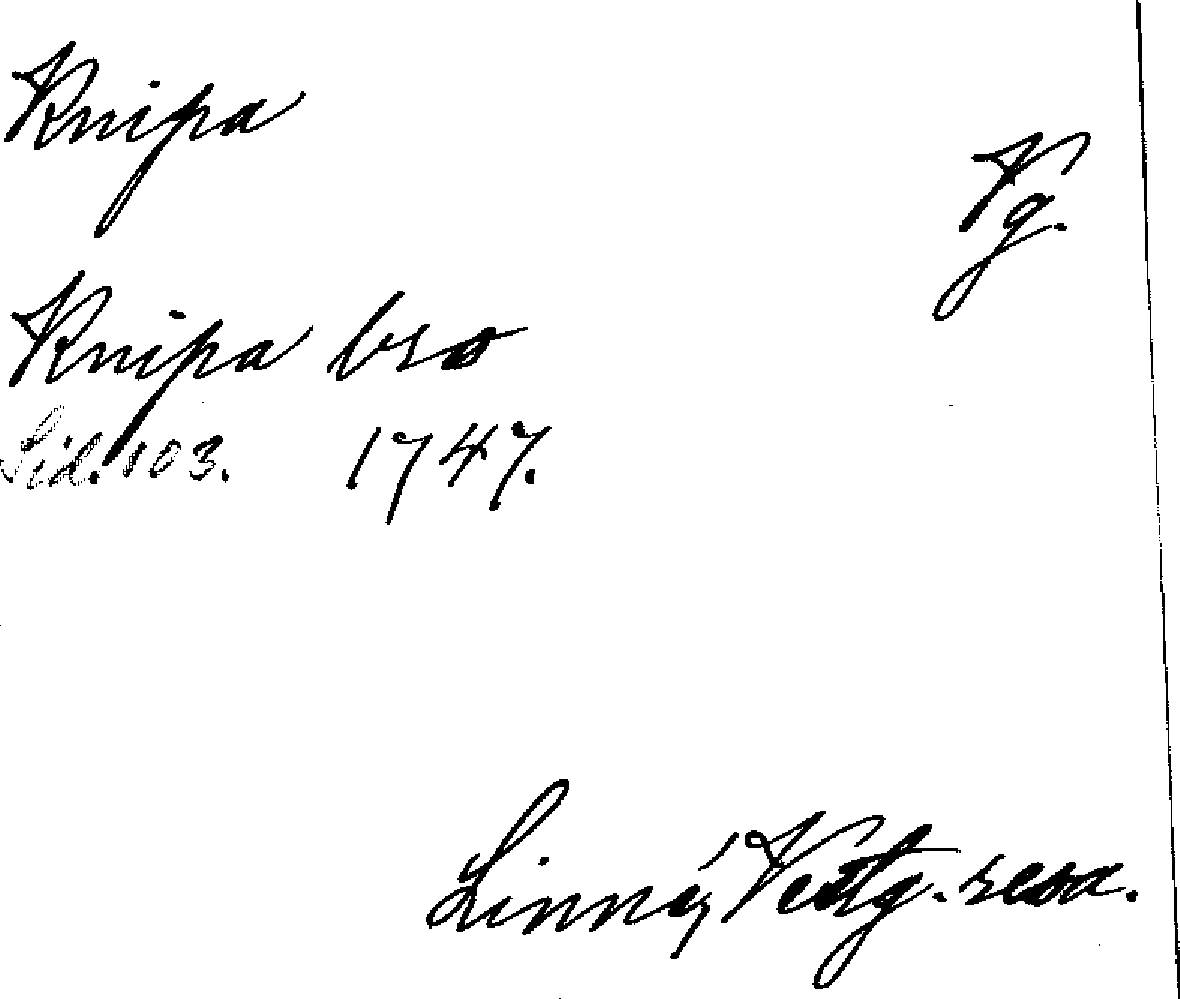 Knipa
Vg.
Knipa bro
Sid. 103. 1747.
Linnés Vestg. resa.